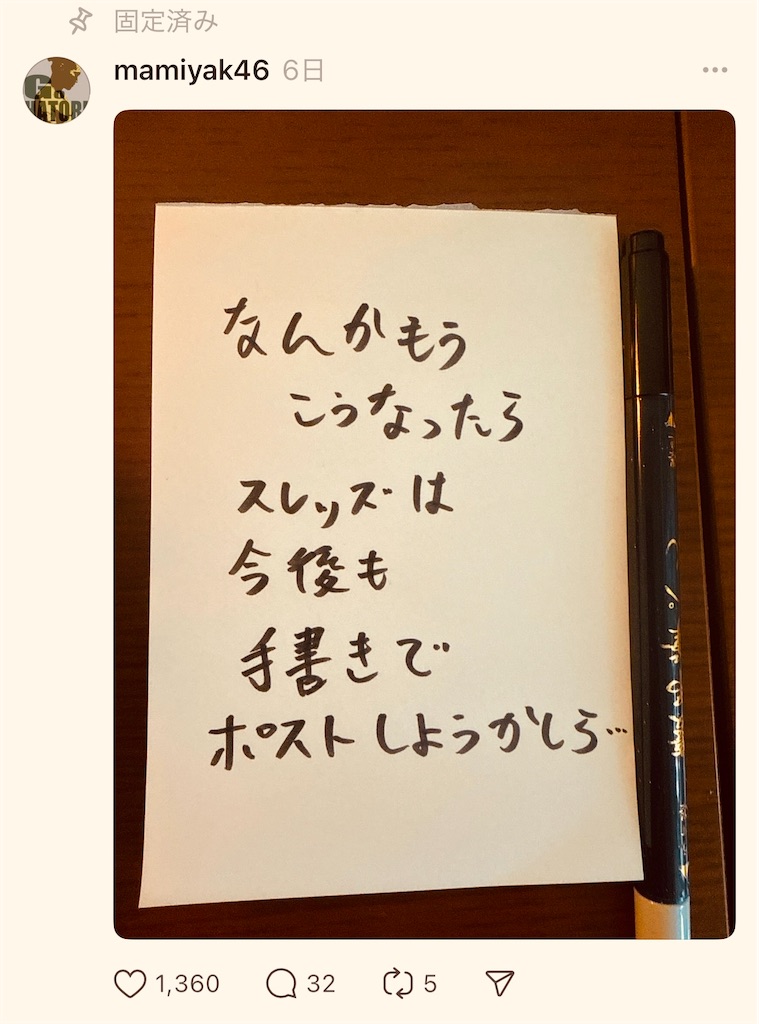 固定済み
mamiyak46 6日
なんかもう
こうなったら
スレッズは
今後も
手書きで
ポストしようかしら…
1,360 32 5